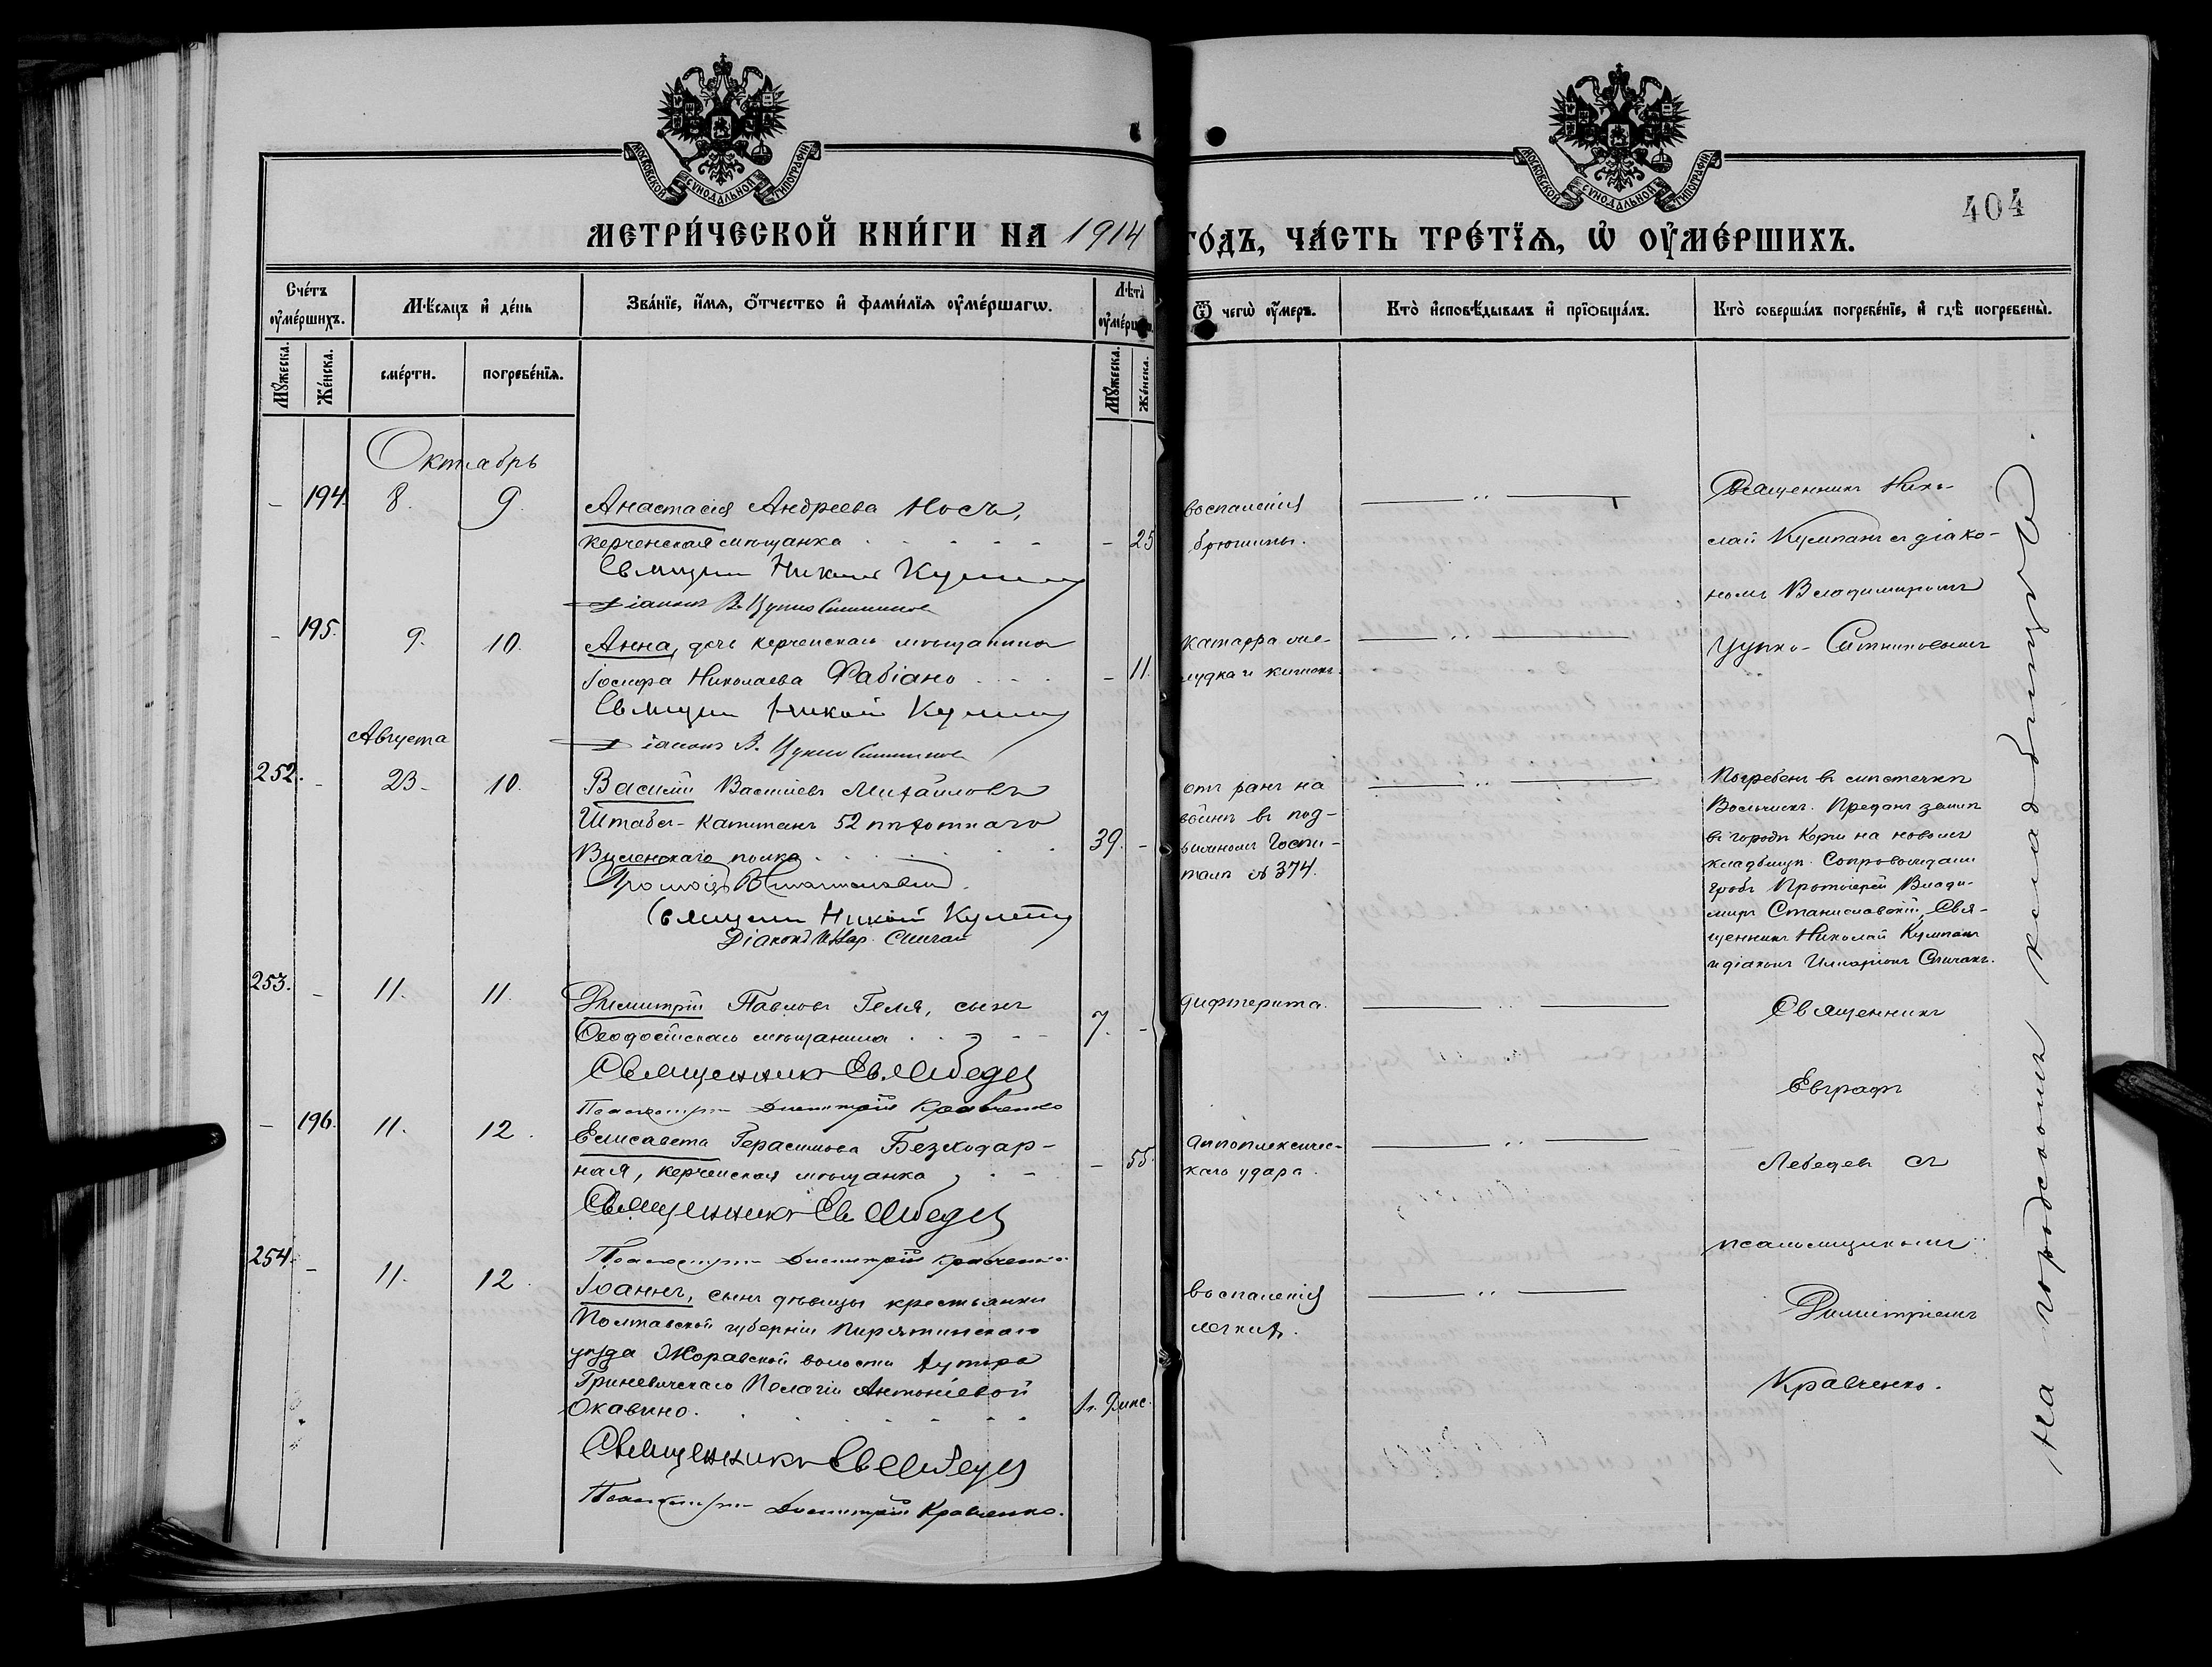 МОСКОВСКОЙ СѴНОДАЛЬНОЙ ТИПОГРАФІИ
МОСКОВСКОЙ СѴНОДАЛЬНОЙ ТИПОГРАФІИ
404
МЕТРИ́ЧЕСКОЙ КНИ́ГИ НА 1914 ГО́ДЪ, ЧА́СТЬ ТРЕ́ТЇѦ, Ѡ҆ ОУ҆МЕ́РШИХЪ.
Сче́тъ оу҆ме́ршихъ.
Мꙋ́жеска.
Же́нска.
Мѣ́сяцъ и҆ де́нь
сме́рти.
погребе́нїѧ.
Зва́нїе, и҆́мѧ, ѻ҆́тчество и҆ фами́лїѧ оу҆ме́ршагѡ.
Лѣ́та оу҆ме́рш
Мꙋ́жеска.
Же́нска.
Ѿ чегѡ̀ оу҆́меръ.
Кто̀ и҆сповѣ́дывалъ и҆ прїѡбща́лъ.
Кто̀ соверша́лъ погребе́нїе, и҆ гдѣ̀ погребены̀.
Октябрь
- 194. 8. 9.
Анастасія Андреева Носъ,
керченская мѣщанка - 25
Священникъ Николай Кумпанъ
Діаконъ В. Цупко Ситниковъ
воспаленія
брюшины.
Священникъ Нико-
лай Кумпанъ съ діако-
номъ Владимиромъ
Цупко-Ситниковымъ
- 195. 9. 10.
Анна, дочь керченскаго мѣщанина
Іосифа Николаева Фабіано - 11.
Священникъ Николай Кумпанъ
Діаконъ В. Цупко Ситниковъ
катарра же-
лудка и кишекъ.
Августа
252. - 23 - 10.
Василій Васильевъ Михайловъ
Штабсъ-Капитанъ 52 пѣхотнаго
Виленскаго полка 39. -
Священникъ Николай Кумпанъ
Діаконъ Илар. Спичакъ
отъ ранъ на
войнѣ въ под-
вижномъ Госпи-
талѣ № 374.
Погребенъ въ мѣстечкѣ
Предан земле
въ городѣ Керчи на новомъ
кладбищѣ. Сопровождали
гробъ Протоіерей Влади-
миръ Станиславскій, Свя-
щенникъ Николай Кумпанъ
и діаконъ Иларіонъ Спичакъ.
253. - 11. 11.
Димитрій Павловъ Геля, сынъ
Ѳеодосійскаго мѣщанина 7. -
Священникъ Ев. Лебедевъ
Псаломщикъ Димитрій Кравченко
дифтерита.
Священникъ
Евграфъ
Лебедевъ съ
псаломщикомъ
Димитріемъ
Кравченко.
- 196. 11. 12.
Елисавета Герасимова Безкодар-
ная, керченская мѣщанка - 55.
Священникъ Ев. Лебедевъ
Псаломщикъ Димитрій Кравченко
аппоплексичес-
каго удара.
254. - 11. 12.
Іоаннъ, сынъ дѣвицы крестьянки
Полтавской губерніи Пирятинскаго
уѣзда Жоравской волости хутора
Гриневическаго Пелагіи Антоніевой
Окавино. 1г. 9 мѣс.
Священникъ Ев. Лебедевъ
Псаломщикъ Димитрій Кравченко.
воспаленія
легкихъ.
На городскомъ кладбищѣ.